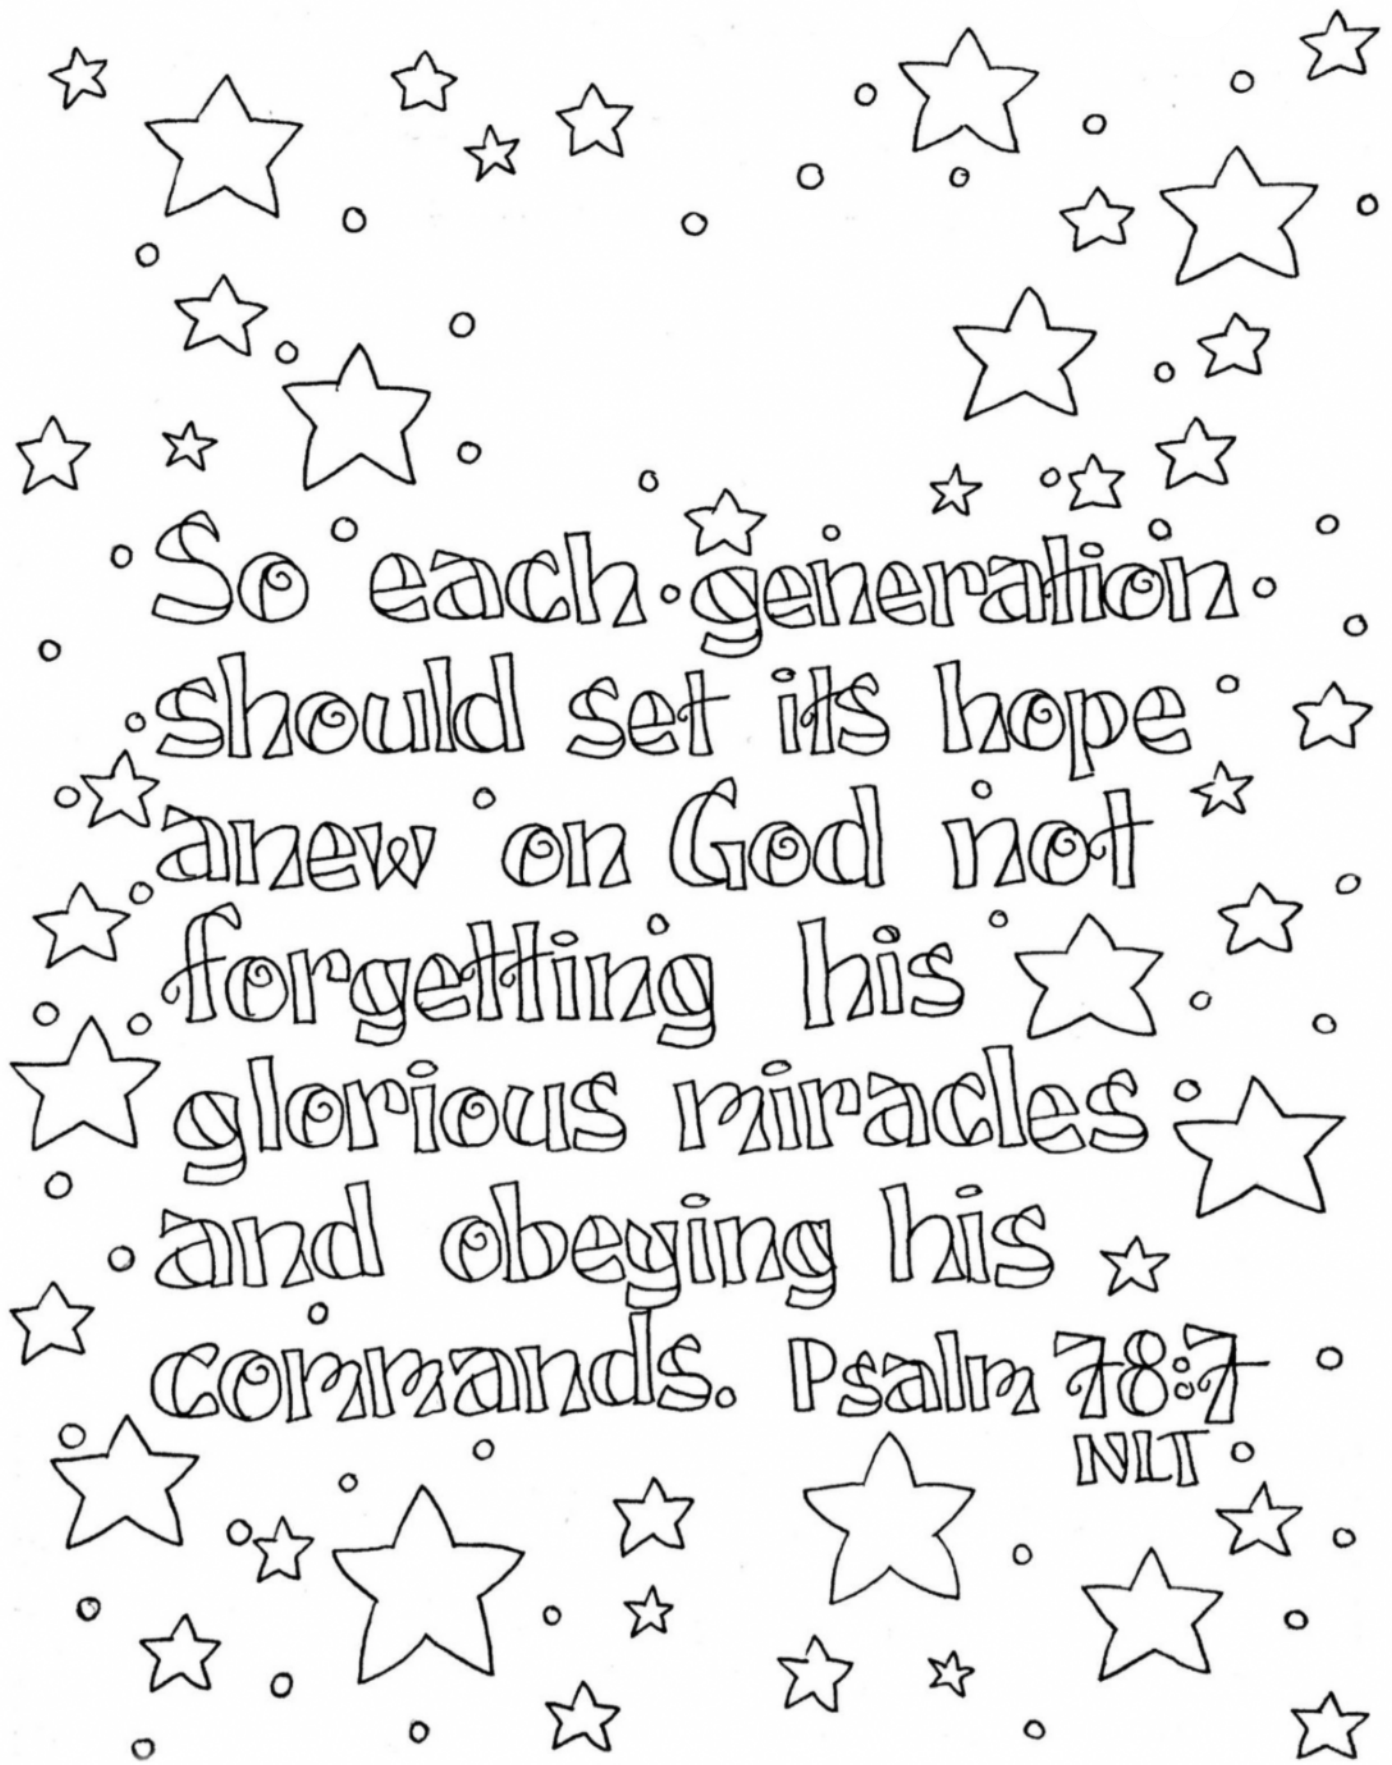 So each generation
should set its hope
anew on God not
forgetting his
glorious miracles
and obeying his
commands. Psalm 78:7
NLT